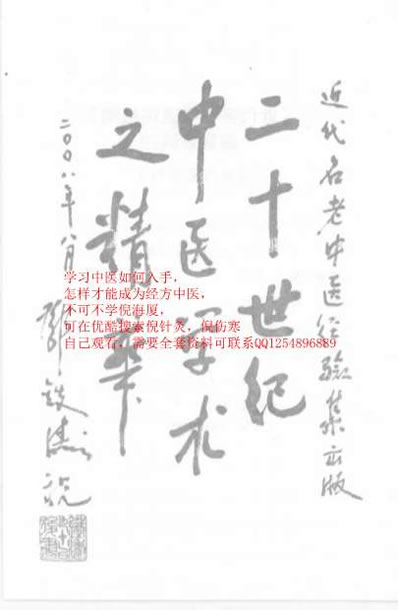 近代名老中医经验集出版
二十世纪
中医学术
之精华
二〇〇八年八月
邓铁涛祝
学习中医如何入手，
怎样才能成为经方中医，
不可不学倪海厦，
可在优酷搜索倪针灸，倪伤寒
自己观看，需要全套资料可联系QQ1254896889